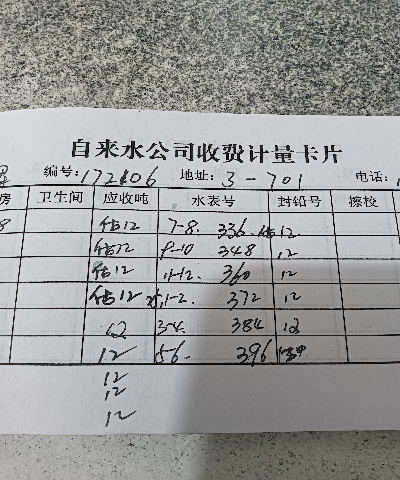 自来水公司收费计量卡片
编号:172106 地址: 3-701 电话:
房 卫生间 应收吨 水表号 封铅号 擦校
8 估12 7-8. 336 估12
估12 9-10 348 12
估12 11-12. 360 12
估12 1-2. 372 12
12 3-4. 384 12
12 5-6. 396
12
12
12